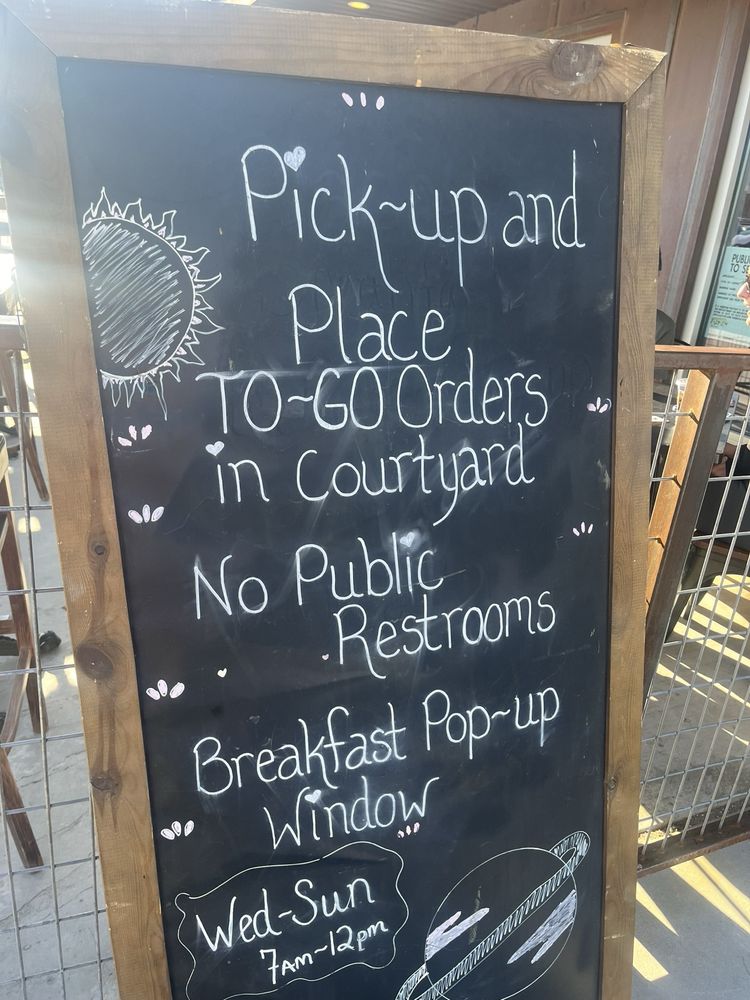 Pick~up and
Place
TO~GO Orders
in Courtyard
No Public
Restrooms
Breakfast Pop~up
Window
Wed-Sun
7AM~12pm